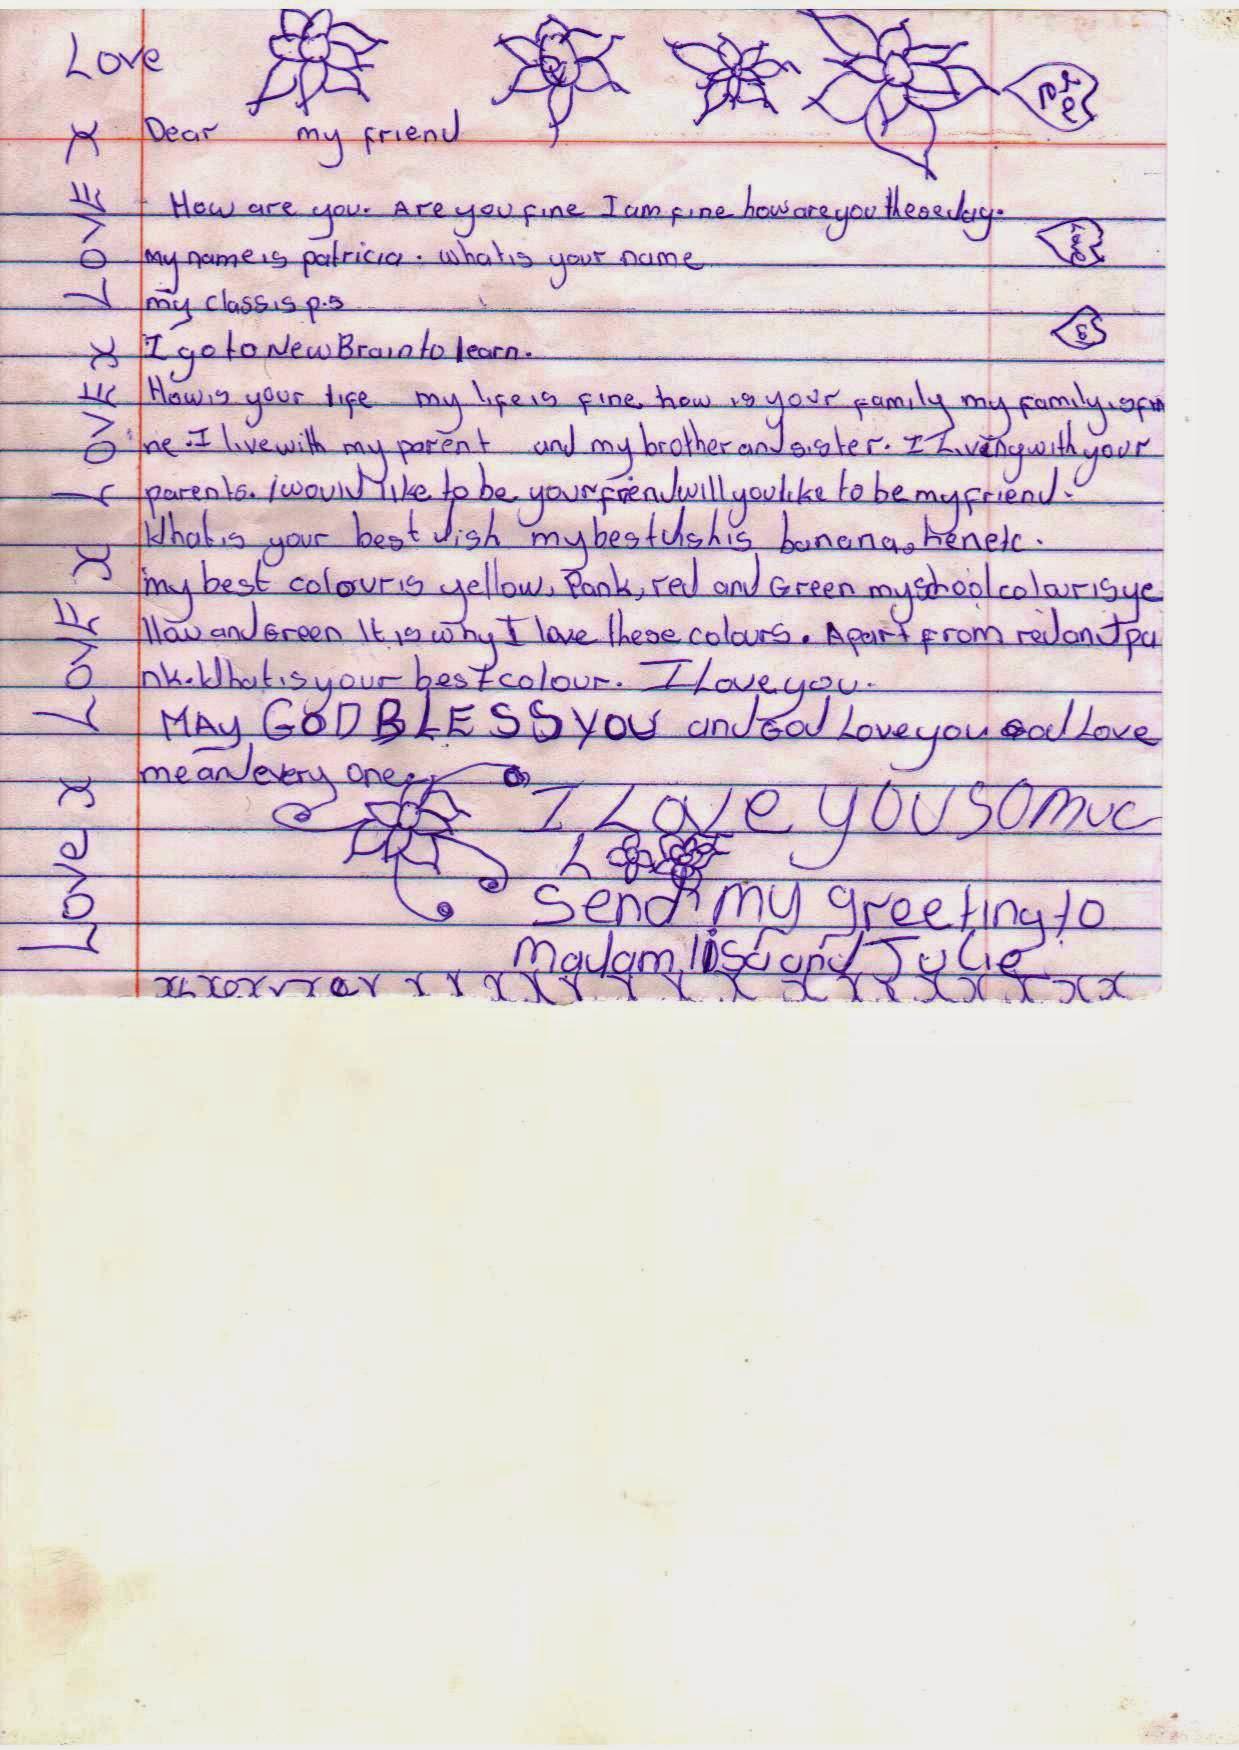 Love
Dear my friend
How are you. Are you fine I am fine how are you these day.
my name is patricia. what is your name
my class is p.5
I go to New Brain to learn.
How is your life my life is fine how is your family my family is fin
ne. I live with my parent and my brother and sister. I Living with your
parents. i would like to be your friend will you like to be my friend.
What is your best dish my best dish is banana,
my best colour is yellow, Pank, red and Green my school colour is ye
llow and Green It is why I love these colours. Apart from red and pa
nk. What is your best colour. I Love you.
MAy GOD BLESS you and God Love you God Love
me and every one.
I Love you so muc
Send my greeting to
Madam lisa and Julie
LOVE X LOVE X LOVE X LOVE X
Love